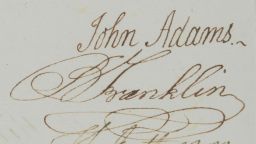 John Adams.
B Franklin